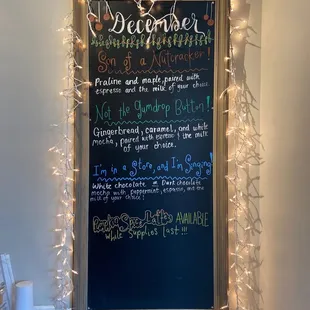 December
Son of a Nutcracker!
Praline and maple, paired with
espresso and the milk of your choice
Not the Gumdrop Button!
Gingerbread, caramel, and white
mocha, paired with espresso & the milk
of your choice.
I'm in a Store, and I'm Singing!
White chocolate or Dark chocolate
mocha with peppermint, espresso, and the
milk of your choice!
Pumpkin Spice Lattes AVAILABLE
while Supplies last!!!